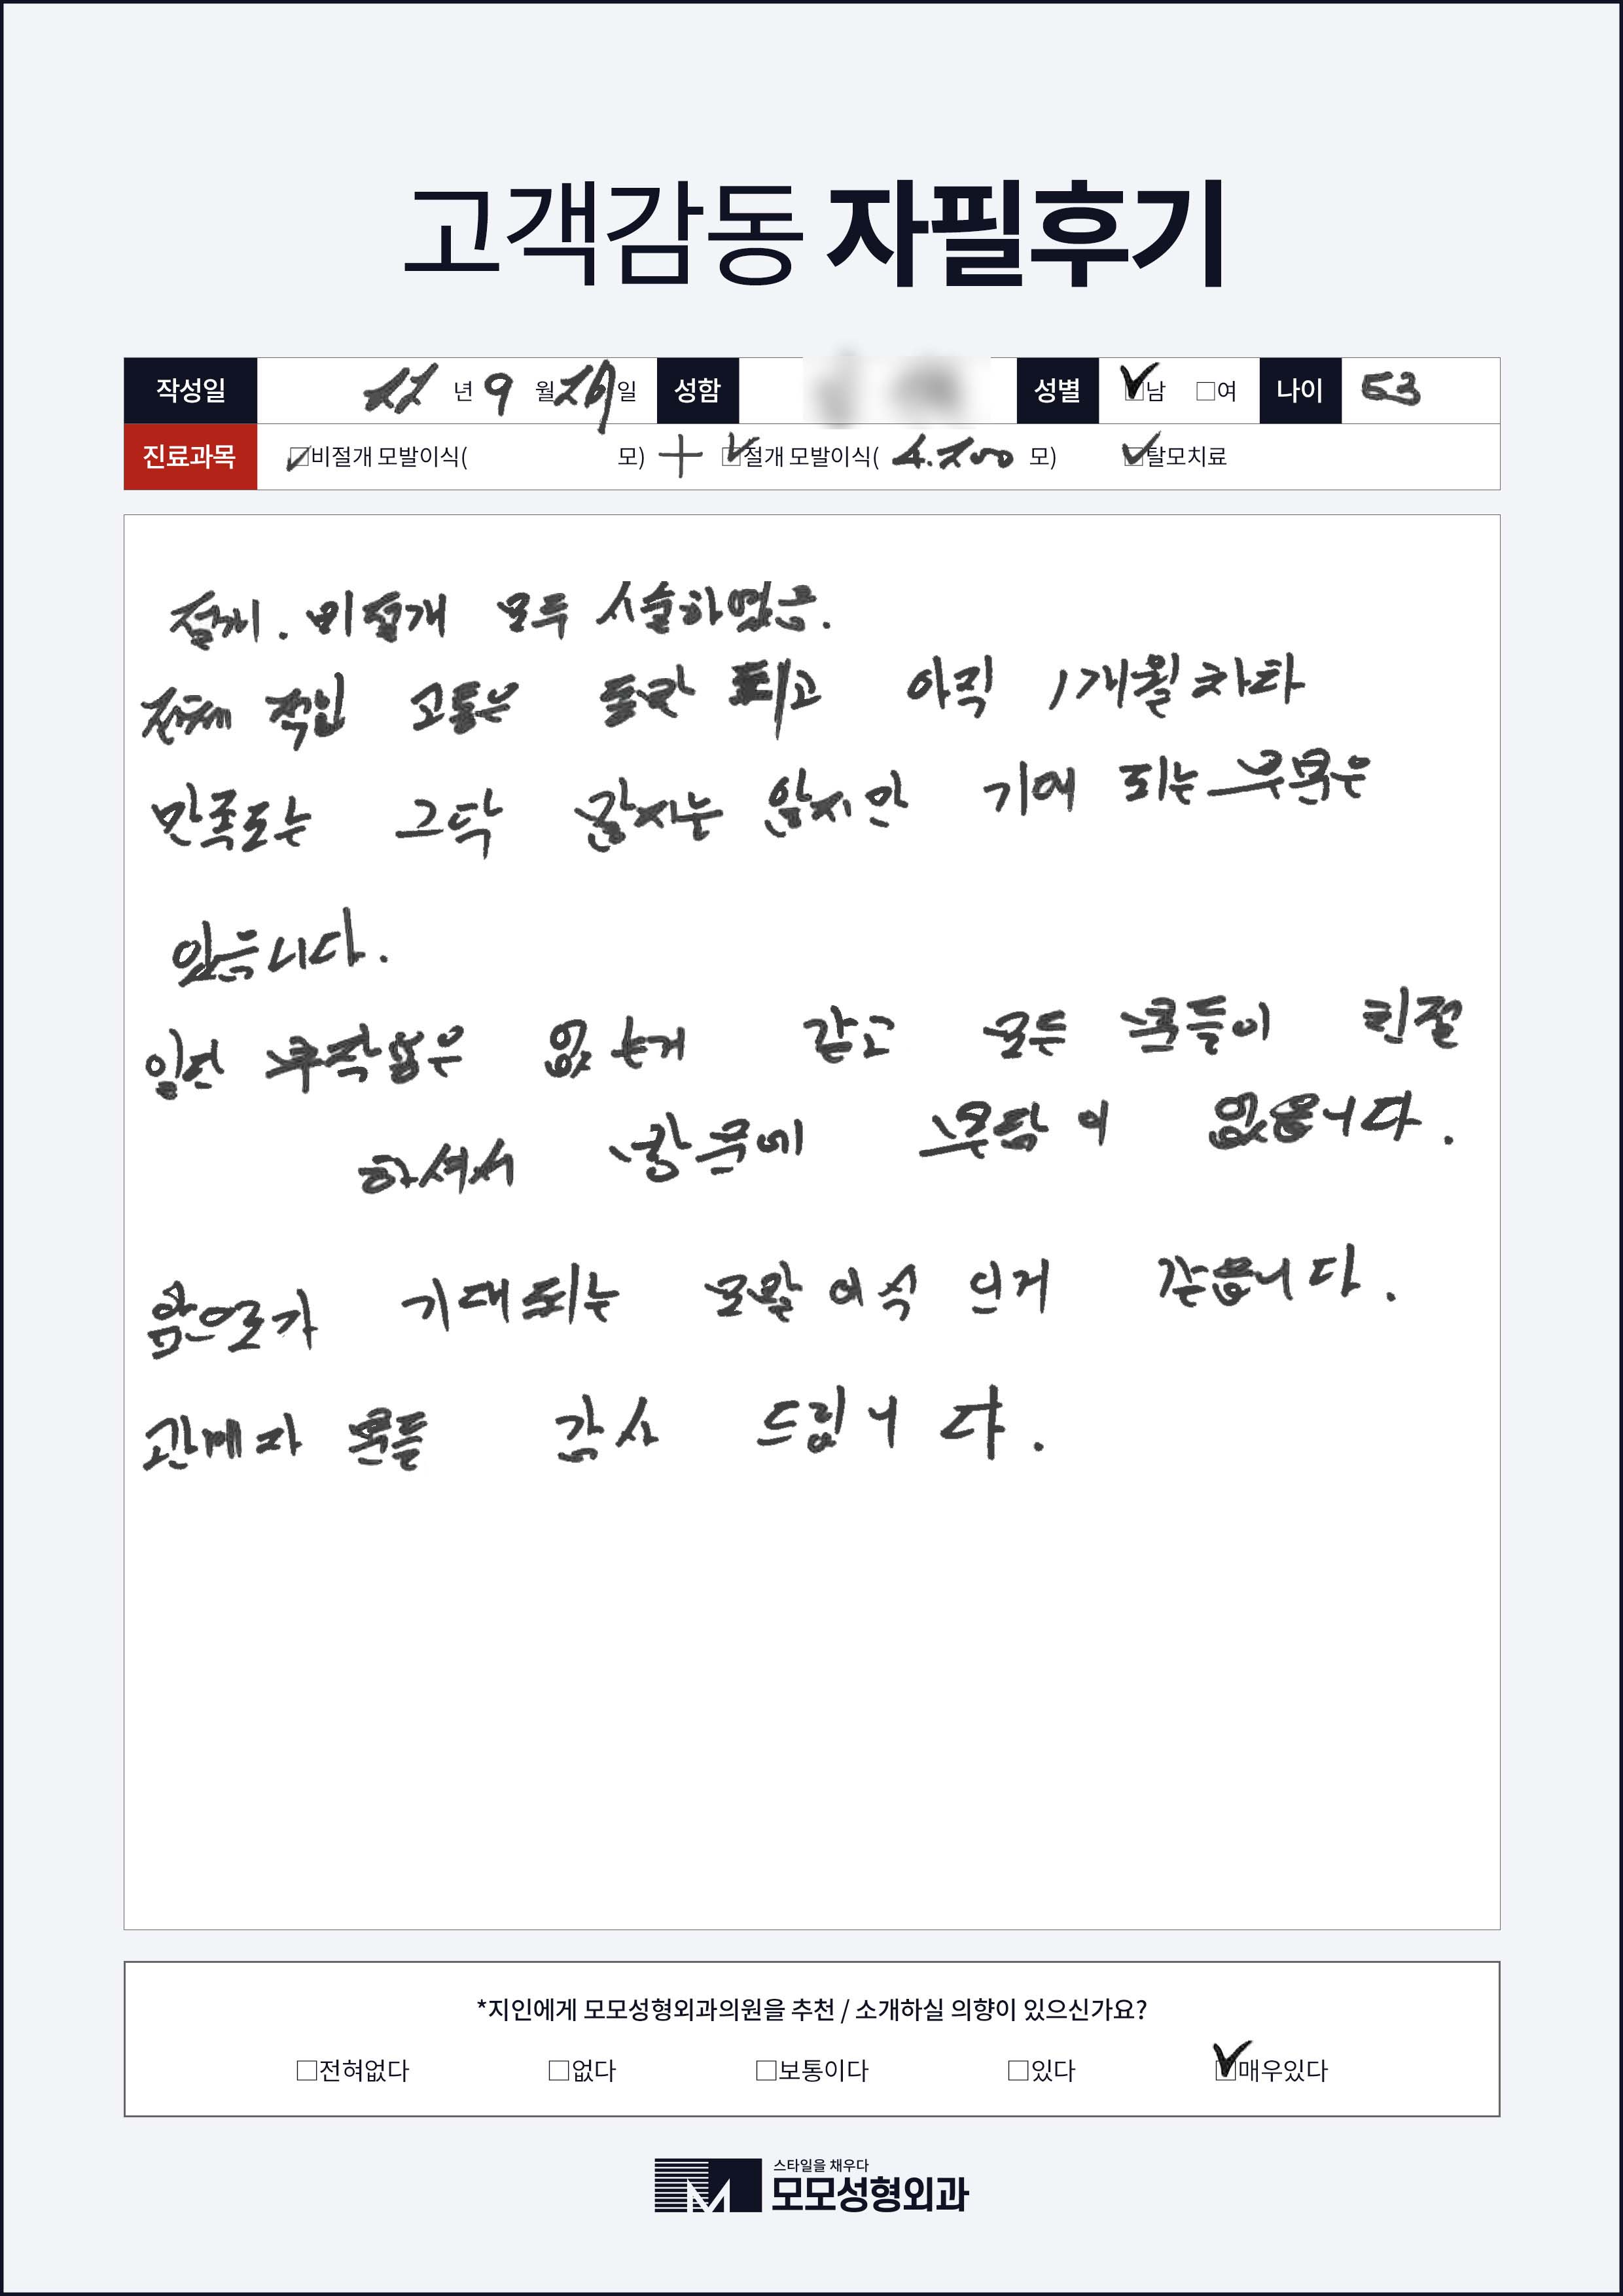 고객감동 자필후기
작성일 22 년 9 월 29 일 성함 성별 ☑남 □여 나이 53
진료과목 ☑비절개 모발이식( 모) + ☑절개 모발이식( 4.200 모) ☑탈모치료
절개. 비절개 모두 시술하였음.
전체적인 고통은 되고 아직 1개월차라
만족도는 그닥 않지만 기대 되는 부분은
있습니다.
일단 부작용은 없는거 같고 모든 분들이 친절
하셔서 방문에 부담이 없습니다.
앞으로가 기대되는 모발이식 인거 같습니다.
관계자 분들 감사 드립니다.
*지인에게 모모성형외과의원을 추천 / 소개하실 의향이 있으신가요?
□전혀없다 □없다 □보통이다 □있다 ☑매우있다
스타일을 채우다
모모성형외과